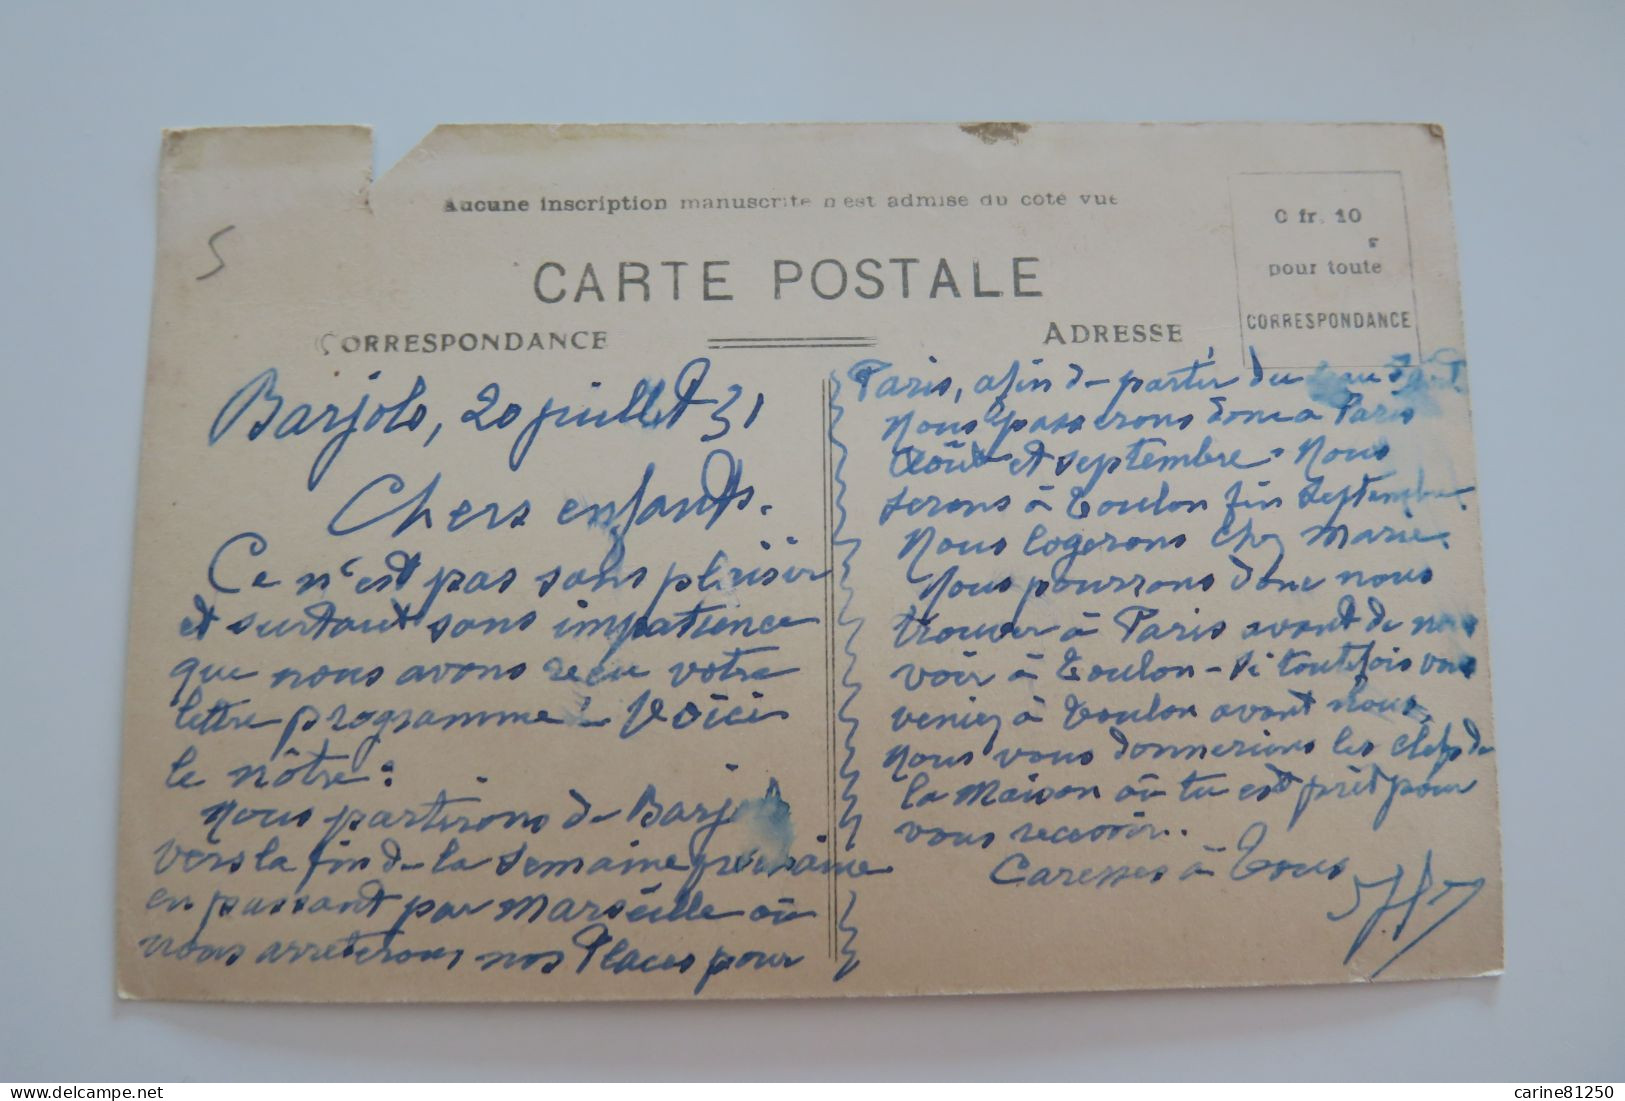 Aucune inscription manuscrite n'est admise du coté vue
C fr. 10
pour toute
CORRESPONDANCE
5
CARTE POSTALE
CORRESPONDANCE
ADRESSE
Barjols, 20 juillet 31
Chers enfants.
Ce n'est pas sans plaisir
et surtout sans impatience
que nous avons reçu votre
lettre programme. Voici
le nôtre:
Nous partirons de Barjols
vers la fin de la semaine prochaine
en passant par Marseille où
nous arreterons nos Places pour
Paris, afin de partir du
Nous passerons donc à Paris
Août et septembre. Nous
serons à Toulon fin septembre.
Nous logerons chez Marie.
Nous pourrons donc nous
trouver à Paris avant de nous
voir à Toulon - Si toutefois vous
veniez à Toulon avant nous,
nous vous donnerions les clefs de
la maison où tu est prêt pour
vous recevoir.
Caresses à Tous
delcampe.net
carine81250